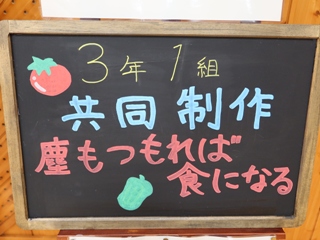 3年1組
共同制作
塵もつもれば
食になる